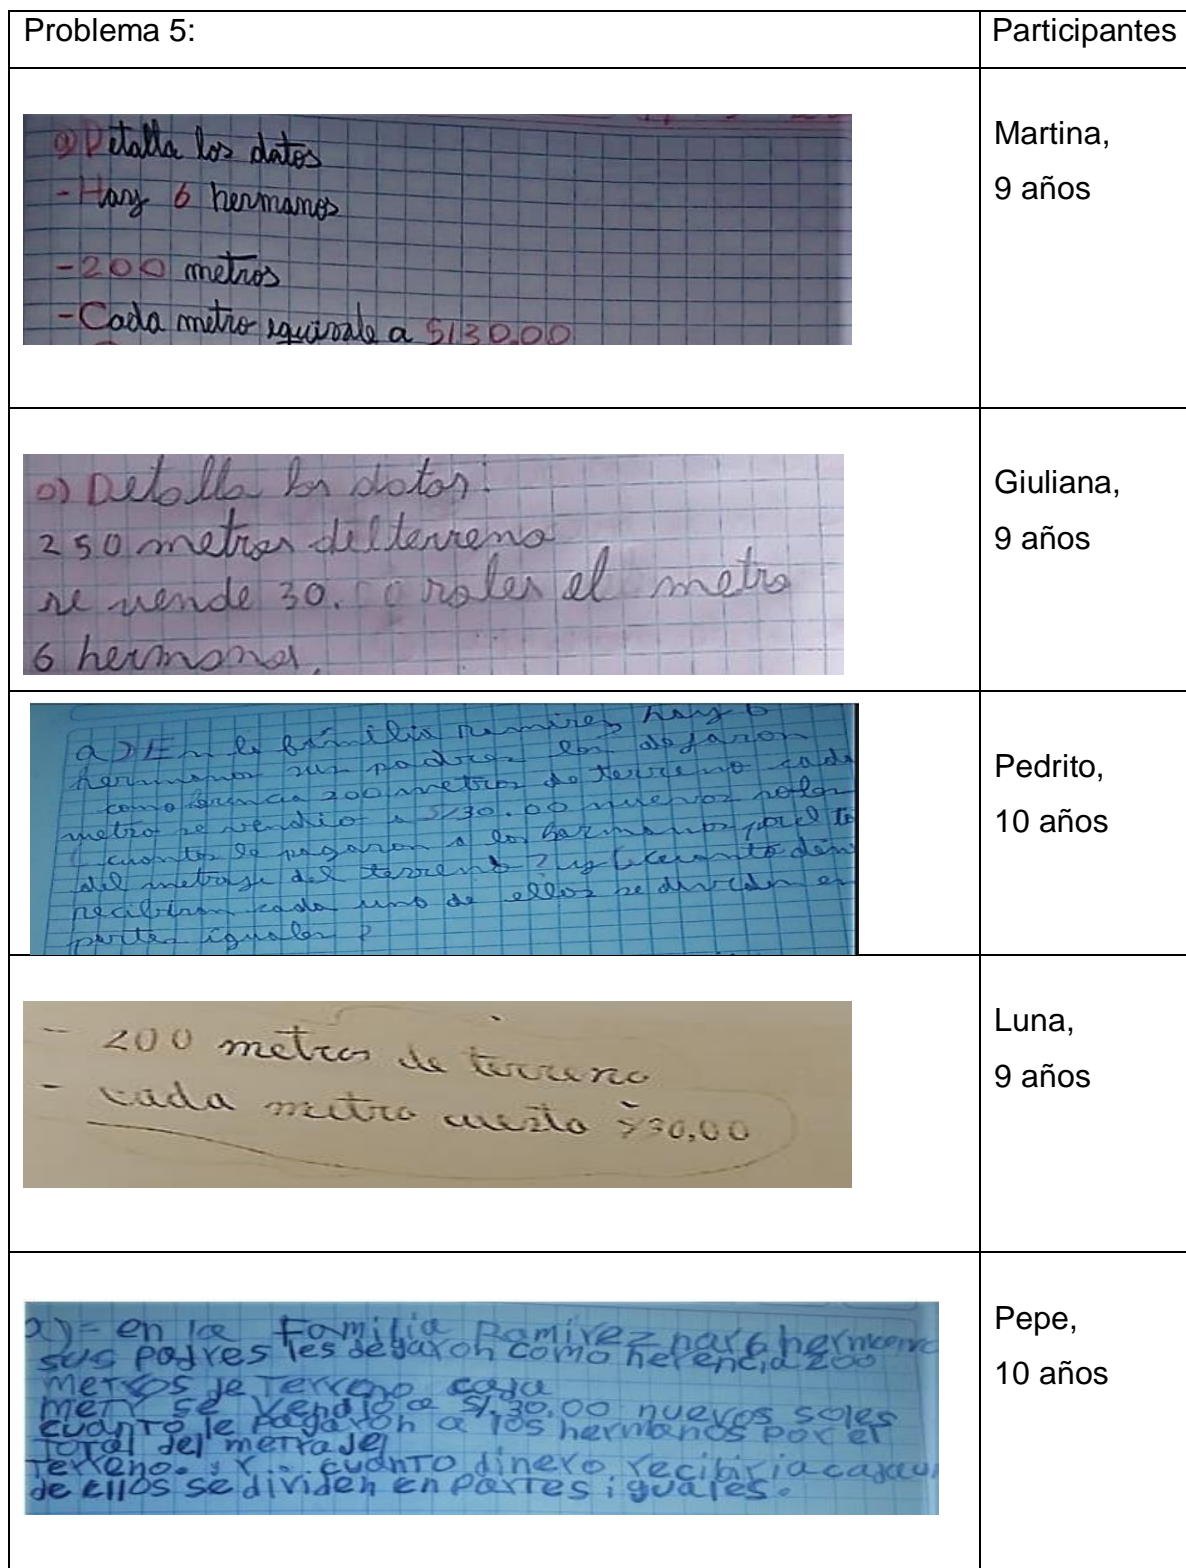 Problema 5:
Participantes
a) Detalla los datos
- Hay 6 hermanos
- 200 metros
- Cada metro equivale a S/30.00
Martina,
9 años
a) Detalla los datos:
250 metros del terreno
se vende 30.00 soles el metro
6 hermanos.
Giuliana,
9 años
a) En la familia ramires hay 6
hermanos sus padres les dejaron
como 200 metros de terreno cada
metro se vendio a S/30.00 nuevos soles
cuanto le pagaron a los hermanos por el to
del metraje del terreno? y ¿cuanto din
recibiran cada uno de ellos se dividen en
partes iguales?
Pedrito,
10 años
- 200 metros de terreno
- cada metro cuesta 30,00
Luna,
9 años
a) = en la Familia Ramirez hay 6 hermano
sus padres les degaron como herencia 200
metros de Terreno cada
metr se vendio a S/.30.00 nuevos soles
cuanto le pagaron a los hermanos por el
Total del metraje
Terreno. . Y . . cuanto dinero recibiria cada
de ellos se dividen en partes iguales.
Pepe,
10 años